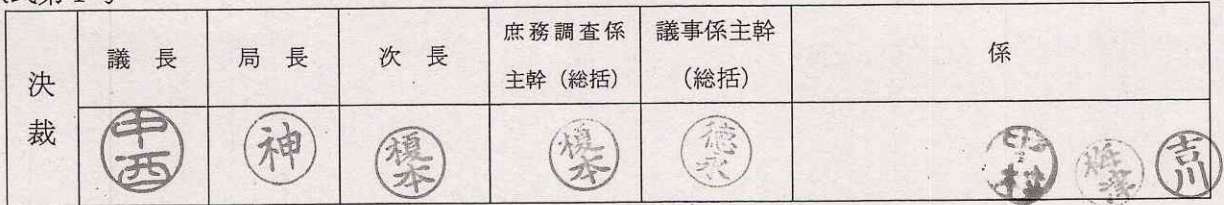 決裁
議長
局長
次長
庶務調査係
主幹（総括）
議事係主幹
（総括）
係
中西
神
榎本
榎本
徳永
吉川